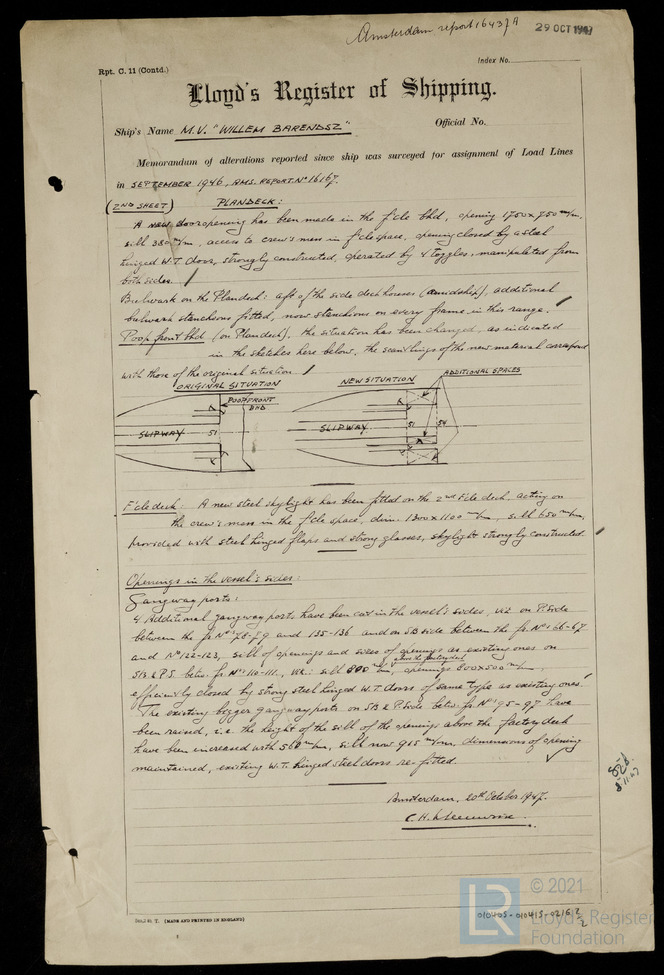 Amsterdam report 16437A
29 OCT 1947
Index No.
Rpt. C. 11 (Contd.)
Lloyd's Register of Shipping.
Ship's Name M.V. "WILLEM BARENDSZ" Official No.
Memorandum of alterations reported since ship was surveyed for assignment of Load Lines
in SEPTEMBER 1946, AMS. REPORT Nº 16167.
(2ND SHEET) PLANDECK:
A new door opening has been made in the f'cle bhd, opening 1750 x 750 m/m,
sill 380 m/m, access to crew's mess in f'cle space, opening closed by a steel
hinged W.T. door, strongly constructed, operated by 4 toggles, manipulated from
both sides.
Bulwark on the Plandeck: aft of the side deckhouses (amidship), additional
bulwark stanchions fitted, now stanchions on every frame in this range.
Poop front bhd (on Plandeck). the situation has been changed, as indicated
in the sketches here below, the scantlings of the new material correspond
with those of the original situation.
ORIGINAL SITUATION NEW SITUATION ADDITIONAL SPACES
POOPFRONT
BHD
SLIPWAY 51 SLIPWAY 51 54
F'cle deck: A new steel skylight has been fitted on the 2nd F'cle deck, acting on
the crew's mess in the f'cle space, dim. 1300 x 1100 m/m, sill 650 m/m,
provided with steel hinged flaps and strong glasses, skylight strongly constructed.
Openings in the vessel's sides:
Gangway ports:
4 Additional gangway ports have been cut in the vessel's sides, viz on P. side
between the fr. Nºs and 135-136 and on SB side between the fr. Nºs 66-67
and Nº 122-123, sill of openings and sizes of openings as existing ones on
SB & P.S. betw. fr. Nºs 110-111, viz.: sill 800 m/m above the factory deck, openings 800x500 m/m,
efficiently closed by strong steel hinged W.T. doors of same type as existing ones.
The existing bigger gangway ports on SB & P. side betw. fr. Nºs 95-97 have
been raised, i.e. the height of the sill of the openings above the factory deck
have been increased with 560 m/m, sill now 915 m/m, dimensions of opening
maintained, existing W.T. hinged steel doors re-fitted.
Amsterdam, 20th October 1947.
C.H.
(MADE AND PRINTED IN ENGLAND)
010405-010415-0216 2/2
LR © 2021
Lloyd's Register
Foundation